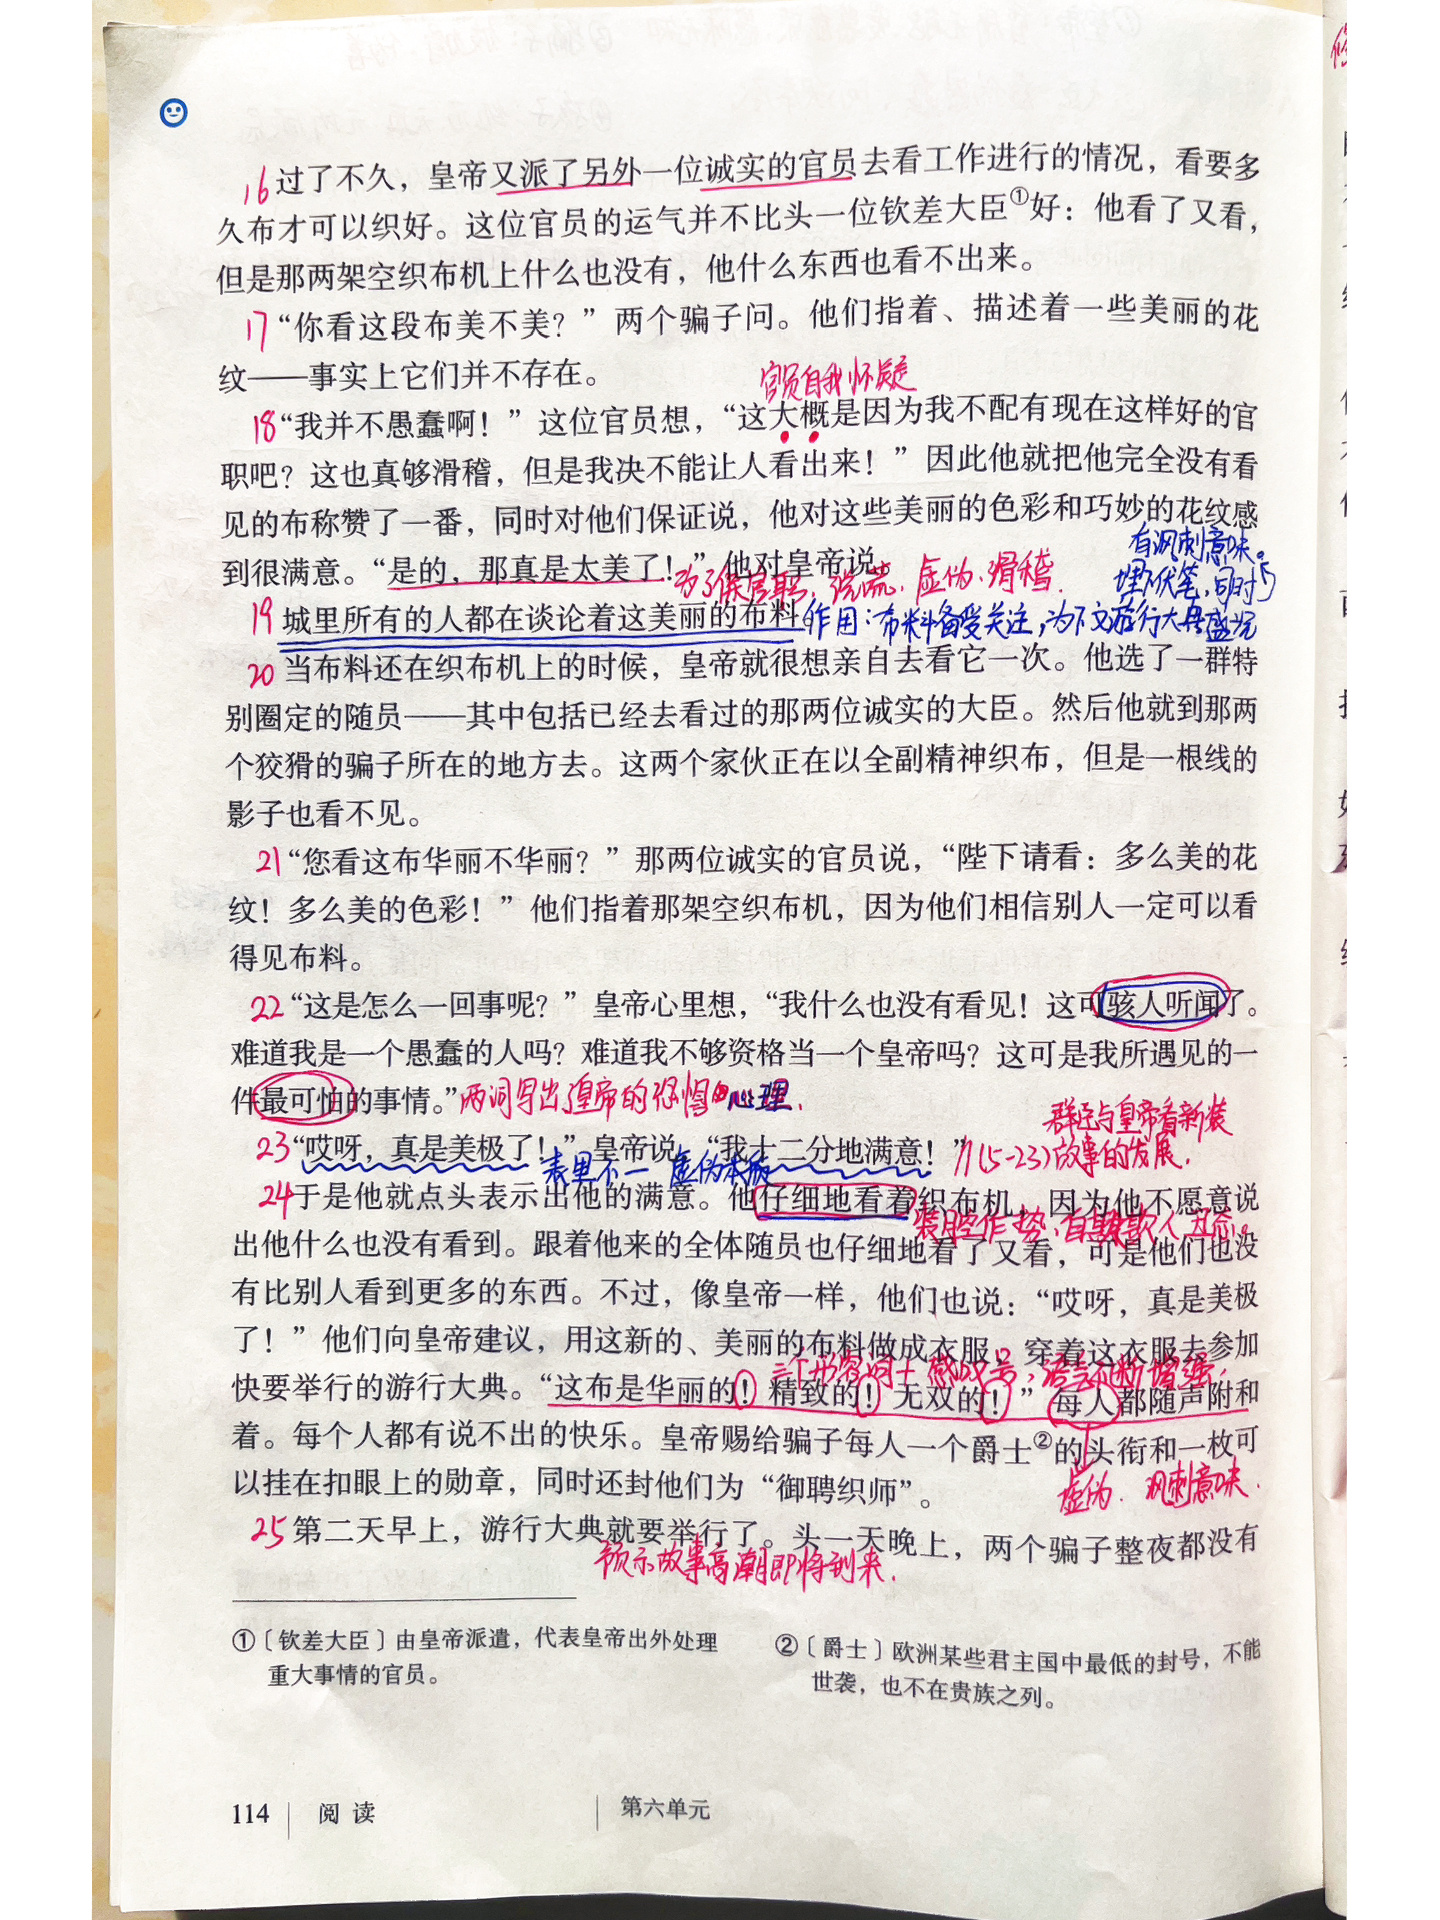 16过了不久，皇帝又派了另外一位诚实的官员去看工作进行的情况，看要多
久布才可以织好。这位官员的运气并不比头一位钦差大臣①好：他看了又看，
但是那两架空织布机上什么也没有，他什么东西也看不出来。
17“你看这段布美不美？”两个骗子问。他们指着、描述着一些美丽的花
纹——事实上它们并不存在。
官员自我怀疑
18“我并不愚蠢啊！”这位官员想，“这大概是因为我不配有现在这样好的官
职吧？这也真够滑稽，但是我决不能让人看出来！”因此他就把他完全没有看
见的布称赞了一番，同时对他们保证说，他对这些美丽的色彩和巧妙的花纹感
到很满意。“是的，那真是太美了！”他对皇帝说。
为了保官职，说谎、虚伪、滑稽.
有讽刺意味。
埋下伏笔，同时与
19城里所有的人都在谈论着这美丽的布料。
作用：布料备受关注，为下文游行大典盛况
20当布料还在织布机上的时候，皇帝就很想亲自去看它一次。他选了一群特
别圈定的随员——其中包括已经去看过的那两位诚实的大臣。然后他就到那两
个狡猾的骗子所在的地方去。这两个家伙正在以全副精神织布，但是一根线的
影子也看不见。
21“您看这布华丽不华丽？”那两位诚实的官员说，“陛下请看：多么美的花
纹！多么美的色彩！”他们指着那架空织布机，因为他们相信别人一定可以看
得见布料。
22“这是怎么一回事呢？”皇帝心里想，“我什么也没有看见！这可骇人听闻了。
难道我是一个愚蠢的人吗？难道我不够资格当一个皇帝吗？这可是我所遇见的一
件最可怕的事情。”
两词写出了皇帝的恐惧心理.
23“哎呀，真是美极了！”皇帝说，“我十二分地满意！”
表里不一 虚伪本质
群臣与皇帝看新装
11(5-23)故事的发展.
24于是他就点头表示出他的满意。他仔细地看着织布机，因为他不愿意说
装腔作势、自欺欺人丑态。
出他什么也没有看到。跟着他来的全体随员也仔细地看了又看，可是他们也没
有比别人看到更多的东西。不过，像皇帝一样，他们也说：“哎呀，真是美极
了！”他们向皇帝建议，用这新的、美丽的布料做成衣服，穿着这衣服去参加
三个形容词+感叹号，语言不断增强.
快要举行的游行大典。“这布是华丽的！精致的！无双的！”每人都随声附和
着。每个人都有说不出的快乐。皇帝赐给骗子每人一个爵士②的头衔和一枚可
以挂在扣眼上的勋章，同时还封他们为“御聘织师”。
虚伪. 讽刺意味.
25第二天早上，游行大典就要举行了。头一天晚上，两个骗子整夜都没有
预示故事高潮即将到来.
①〔钦差大臣〕由皇帝派遣，代表皇帝出外处理
重大事情的官员。
②〔爵士〕欧洲某些君主国中最低的封号，不能
世袭，也不在贵族之列。
114 阅读 第六单元